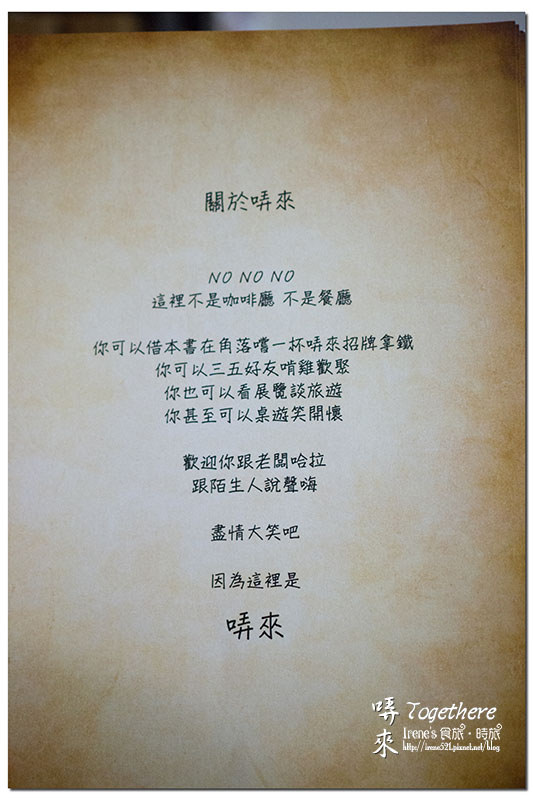 關於哢來
NO NO NO
這裡不是咖啡廳 不是餐廳
你可以借本書在角落嚐一杯哢來招牌拿鐵
你可以三五好友啃雞歡聚
你也可以看展覽談旅遊
你甚至可以桌遊笑開懷
歡迎你跟老闆哈拉
跟陌生人說聲嗨
盡情大笑吧
因為這裡是
哢來
哢來 Togethere
Irene's 食旅・時旅
http://irene521.pixnet.net/blog